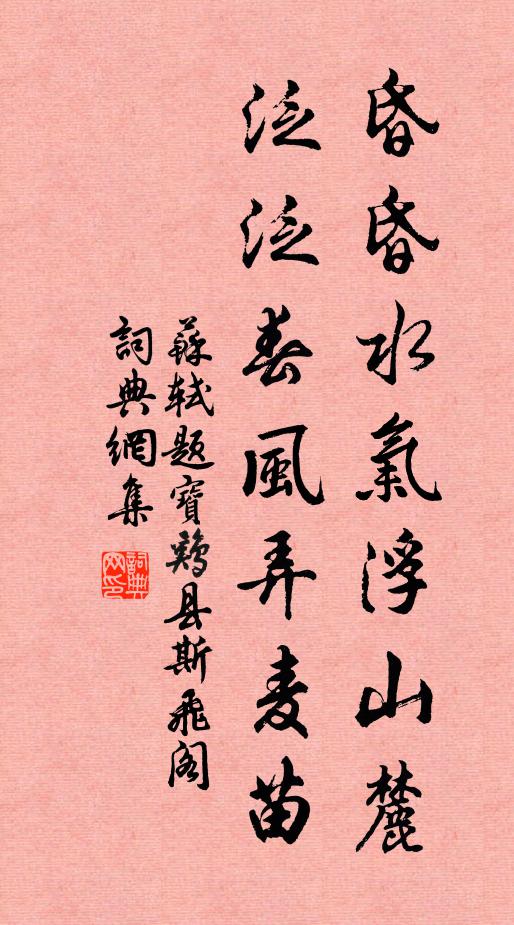 昏昏水氣浮山麓
泛泛春風弄麦苗
蘇軾題寶鷄县斯飛阁
詞典網集
詞典网印